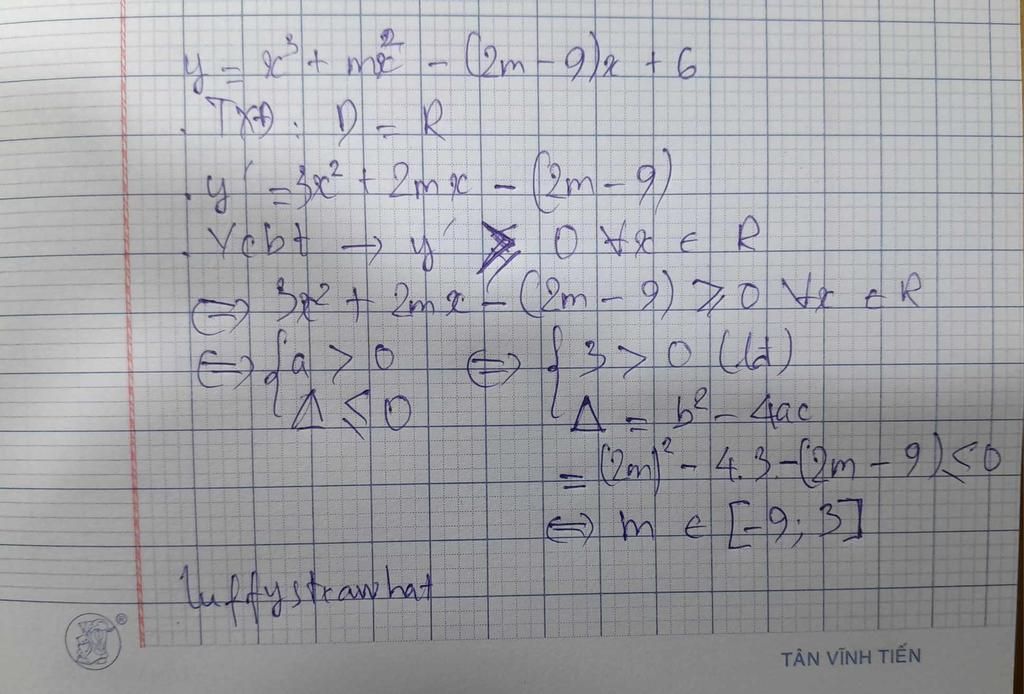 y = x³ + mx² - (2m - 9)x + 6
. TXĐ: D = R
. y' = 3x² + 2mx - (2m - 9)
. Ycbt → y' ≥ 0 ∀x ∈ R
⇔ 3x² + 2mx - (2m - 9) ≥ 0 ∀x ∈ R
⇔ { a > 0 ⇔ { 3 > 0 (lđ)
Δ ≤ 0 Δ = b² - 4ac
= (2m)² - 4.3.-(2m - 9) ≤ 0
⇔ m ∈ [-9; 3]
luffystrawhat
®
TÂN VĨNH TIẾN